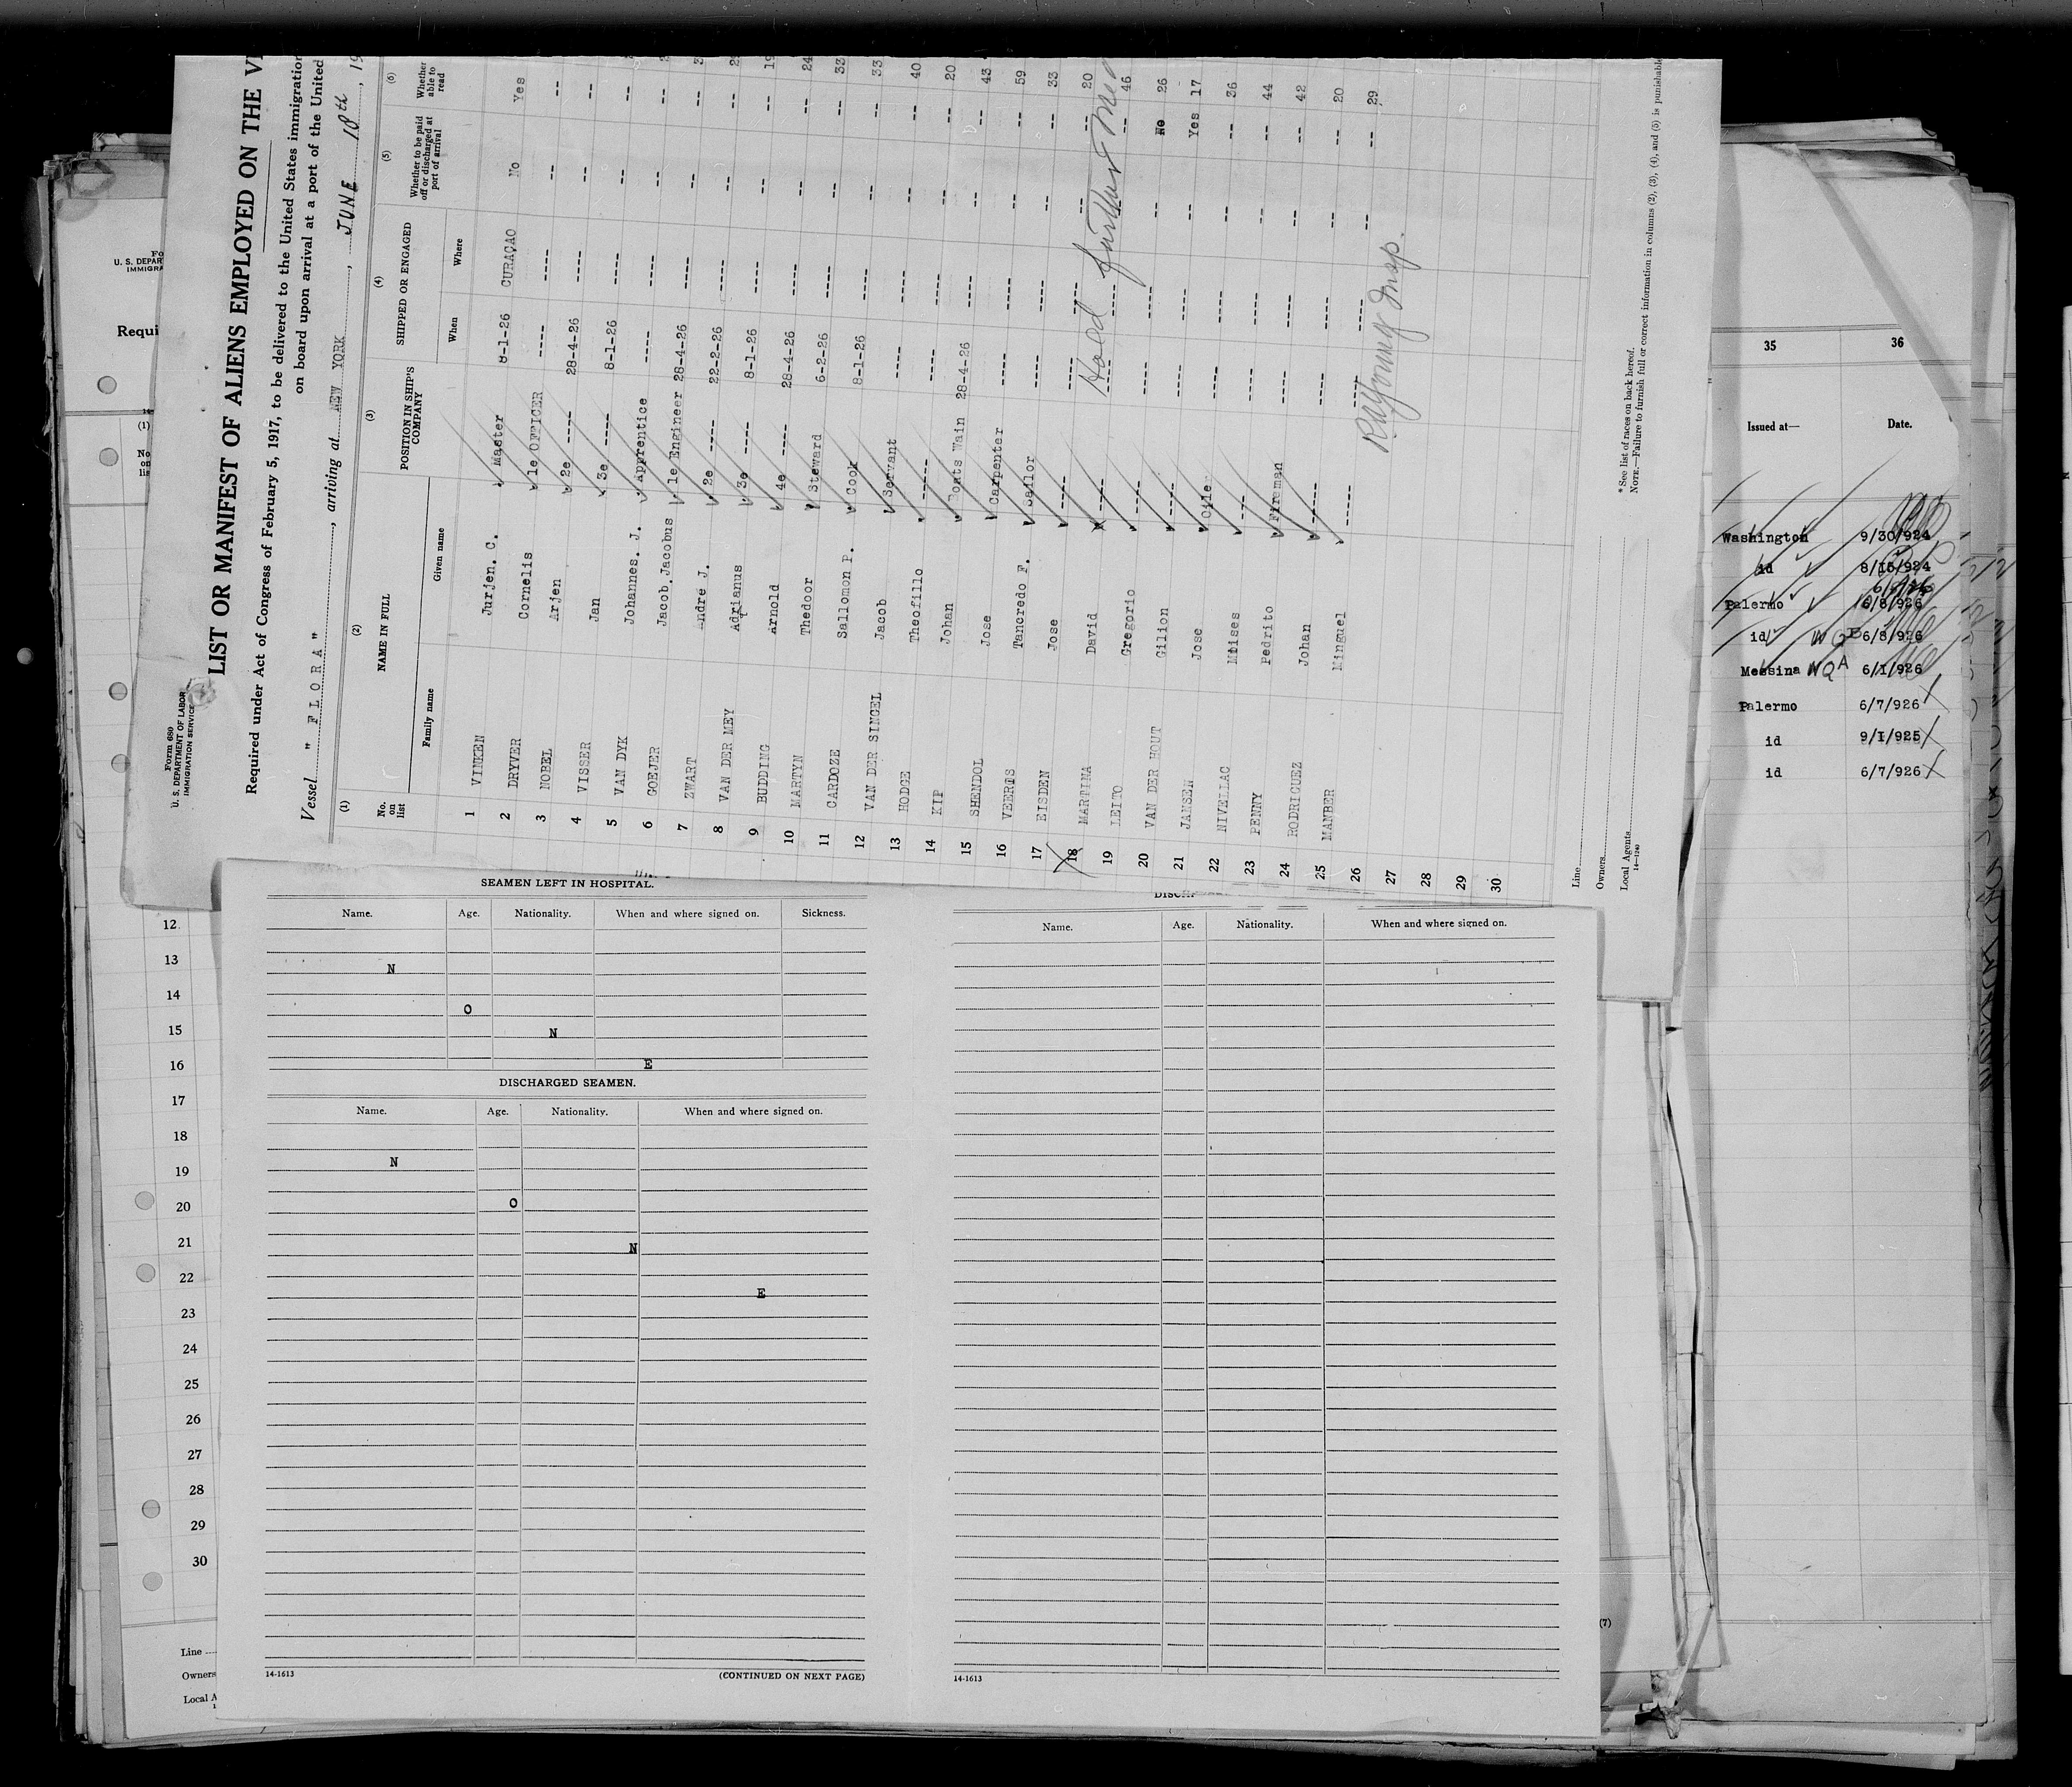 Form 680
U. S. DEPARTMENT OF LABOR
IMMIGRATION SERVICE
LIST OR MANIFEST OF ALIENS EMPLOYED ON THE
Required under Act of Congress of February 5, 1917, to be delivered to the United States immigration
on board upon arrival at a port of the United
Vessel " FLORA ", arriving at NEW YORK, JUNE 18th, 19
(1) (2) (3) (4) (5) (6)
No. on list NAME IN FULL POSITION IN SHIP'S COMPANY SHIPPED OR ENGAGED Whether to be paid off or discharged at port of arrival Whether able to read
Family name Given name When Where
1 VINKEN Jurjen. C. Master 8-1-26 CURAÇAO No Yes
2 DRYVER Cornelis 1e OFFICER ---- ---- -- --
3 NOBEL Arjen 2e ---- 28-4-26 ---- -- --
4 VISSER Jan 3e ---- 8-1-26 ---- -- --
5 VAN DYK Johannes. J. Apprentice ---- ---- -- --
6 GOEJER Jacob Jacobus 1e Engineer 28-4-26 ---- -- --
7 ZWART Andre J. 2e ---- 22-2-26 ---- -- --
8 VAN DER MEY Adrianus 3e ---- 8-1-26 ---- -- --
9 BUDDING Arnold 4e ---- 28-4-26 ---- -- 19
10 MARTYN Thedoor Steward 6-2-26 ---- -- -- 24
11 CARDOZE Sallomon P. Cook 8-1-26 ---- -- -- 33
12 VAN DER SINGEL Jacob Servant ---- ---- -- -- 33
13 HODGE Theofillo ----- ---- ---- -- -- 40
14 KIP Johan Boats Wain 28-4-26 ---- -- -- 20
15 SHENDOL Jose Carpenter ---- ---- -- -- 43
16 VEERIS Tancredo F. Sailor ---- ---- -- -- 59
17 EISDEN Jose ---- ---- ---- -- -- 33
18 MARTINA David ---- ---- ---- -- -- 20
19 LEITO Gregorio ---- ---- ---- -- -- 46
20 VAN DER HOUT Gilion ---- ---- ---- -- No 26
21 JANSEN Jose Oiler ---- ---- -- Yes 17
22 NIVELLAC Moises ---- ---- ---- -- -- 36
23 PENNY Pedrito Fireman ---- ---- -- -- 44
24 RODRIGUEZ Johan ---- ---- ---- -- -- 42
25 MANBER Minguel ---- ---- ---- -- -- 20
26 29
27
28
29
30
Hold further
Insp.
* See list of races on back hereof.
NOTE.—Failure to furnish full or correct information in columns (2), (3), (4), and (5) is punishable
Line
Owners
Local Agents
14-1240
Requi
(1)
35 36
Issued at— Date.
Washington 9/30/924
id 8/15/924
Palermo 6/8/926
id 6/8/926
Messina NQA 6/1/926
Palermo 6/7/926
id 9/1/925
id 6/7/926
SEAMEN LEFT IN HOSPITAL.
Name. Age. Nationality. When and where signed on. Sickness.
N
O
N
E
DISCHARGED SEAMEN.
Name. Age. Nationality. When and where signed on.
N
O
N
E
14-1613 (CONTINUED ON NEXT PAGE)
Name. Age. Nationality. When and where signed on.
14-1613
12
13
14
15
16
17
18
19
20
21
22
23
24
25
26
27
28
29
30
Line
Owners
Local A
(7)